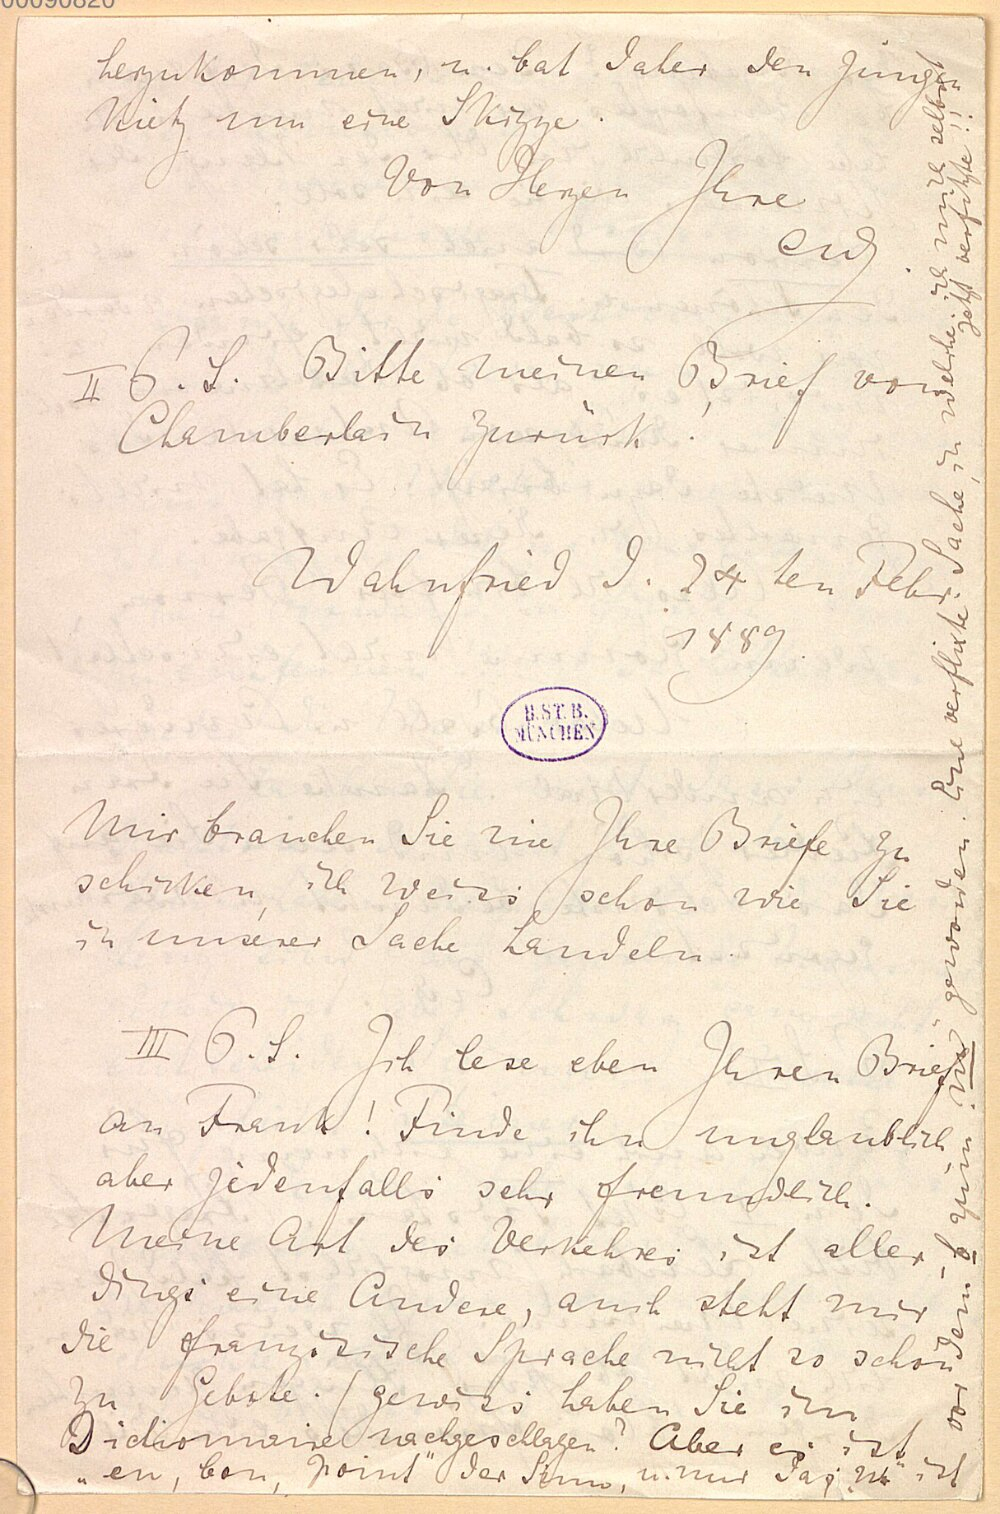 00090820
herzukommen, u. bat daher den jungen
Kietz um eine Skizze.
Von Herzen Ihre
CW.
II P. S. Bitte meinen Brief von
Chamberlain zurück!
Wahnfried d. 24ten Febr.
1889.
B.ST.B.
MÜNCHEN
Mir brauchen Sie nie Ihre Briefe zu
schicken, ich weiss schon wie Sie
in unserer Sache handeln.
III P. S. Ich lese eben Ihren Brief
an Frank! Finde ihn unglaublich
aber jedenfalls sehr freundlich.
Meine Art des Verkehres ist aller
dings eine Andere, auch steht mir
die französische Sprache nicht so schön
zu Gebote. (gewiss haben Sie im
Dictionnaire nachgeschlagen? Aber es ist
„en, bon, point" der Sinn, u. nur das „m" ist
vor dem b zum „m" geworden. Eine verflixte Sache, in welche ich mich selbst
jetzt verfitzte!!